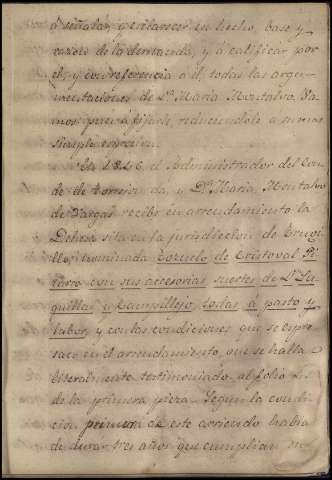 á señalar, y esclarecer un hecho, base y
razon de la demanda, y á calificar por
él, y con referencia á él, todas las argu-
mentaciones de D.ª Maria Montalvo. Va-
mos pues á fijarle, reduciendole a su mas
simple expresion.
En 1846 el Administrador del Con-
de de , y D.ª Maria Montalvo
de Vargas recibió en arrendamiento la
Dehesa sita en la jurisdiccion de Truji-
llo, nominada Pozuelo de Cristoval Pi-
zarro con sus accesorias suertes de
quillas y Campillejo, todas á pasto y
labor, y con las condiciones que se expre-
saron en el arrendamiento, que se halla
literalmente testimoniado al folio
de la primera pieza. Segun la condi-
cion primera de este arriendo habia
de durar tres años que cumplian